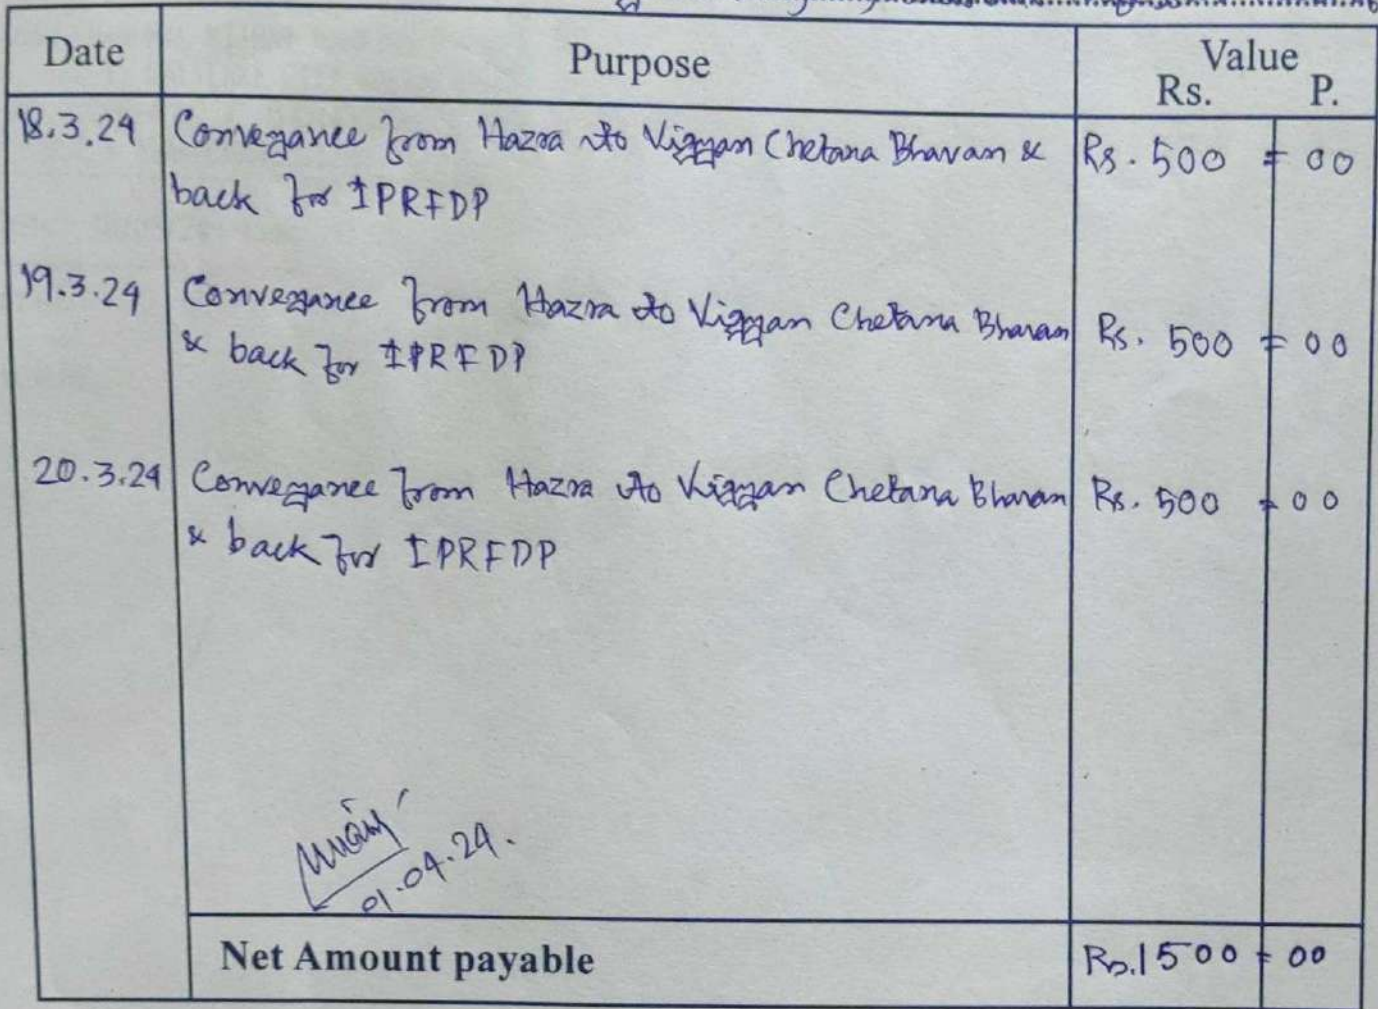 Date Purpose Value
Rs. P.
18.3.24 Conveyance from Hazra to Vigyan Chetana Bhavan & Rs. 500 = 00
back for IPRFDP
19.3.24 Conveyance from Hazra to Vigyan Chetana Bhavan Rs. 500 = 00
& back for IPRFDP
20.3.24 Conveyance from Hazra to Vigyan Chetana Bhavan Rs. 500 = 00
& back for IPRFDP
01.04.24.
Net Amount payable Rs. 1500 = 00